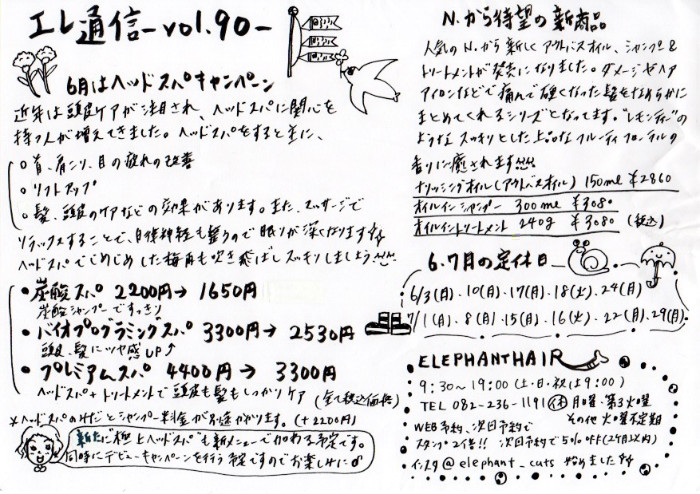 エレ通信-vol.90-
6月はヘッドスパキャンペーン
近年は頭皮ケアが注目され、ヘッドスパに関心を
持つ人が増えてきました。ヘッドスパをすると主に、
○首、肩こり、目の疲れの改善
○リフトアップ
○髪、頭皮のケアなどの効果があります。また、マッサージで
リラックスすることで、自律神経も整うので眠りが深くなります
ヘッドスパでじめじめした梅雨も吹き飛ばしスッキリしましょう
・炭酸スパ 2200円→1650円
炭酸シャンプーですっきり
・バイオプログラミングスパ 3300円→2530円
頭皮、髪にツヤ感UP↑
・プレミアムスパ 4400円→3300円
ヘッドスパ+トリートメントで頭皮も髪もしっかりケア (全て税込価格)
*ヘッドスパのみだとシャンプー料金が別途かかります。(+2200円)
新たに"極上ヘッドスパ"も新メニューで加わる予定です。
同時にデビューキャンペーンを行う予定ですのでお楽しみに
N.から待望の新商品
人気のN.から新しくアクトバスオイル、シャンプー&
トリートメントが発売になりました。ダメージやヘア
アイロンなどで痛んで硬くなった髪をなめらかに
まとめてくれるシリーズとなってます。"レモンティー"の
ようなスッキリとした上品なフルーティフローラルの
香りに癒されます
ナリッシングオイル(アクトバスオイル) 150ml ¥2860
オイルインシャンプー 300ml ¥3080
オイルイントリートメント 240g ¥3080 (税込)
6.7月の定休日
6/3(月).10(月).17(月).18(火).24(月)
7/1(月).8(月).15(月).16(火).22(月).29(月)
ELEPHANT HAIR
9:30〜19:00(土・日・祝は9:00)
TEL 082-236-1191 休 月曜・第3火曜
その他 火曜不定期
WEB予約、次回予約で
スタンプ2倍!! 次回予約で5%OFF(2ヶ月以内)
インスタ@elephant_cuts 始めました